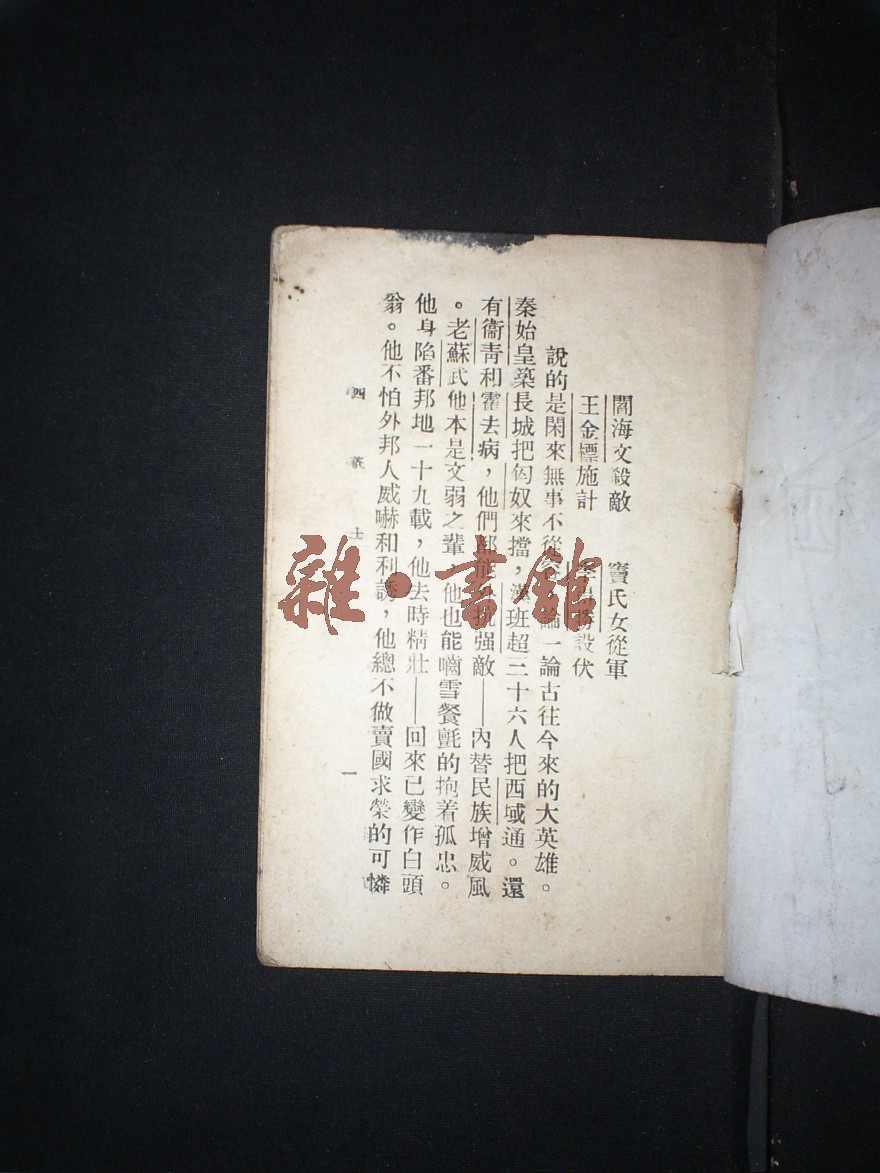 閻海文殺敵　竇氏女從軍
王金標施計　設伏
說的是閑來無事不從容，論一論古往今來的大英雄。
秦始皇築長城把匈奴來擋，漢班超三十六人把西域通。還
有衞青和霍去病，他們都能抗強敵——內替民族增威風
。老蘇武他本是文弱之輩，他也能嚙雪餐氈的抱着孤忠。
他身陷番邦地一十九載，他去時精壯——回來已變作白頭
翁。他不怕外邦人威嚇和利誘，他總不做賣國求榮的可憐
四義士
一
雜·書館